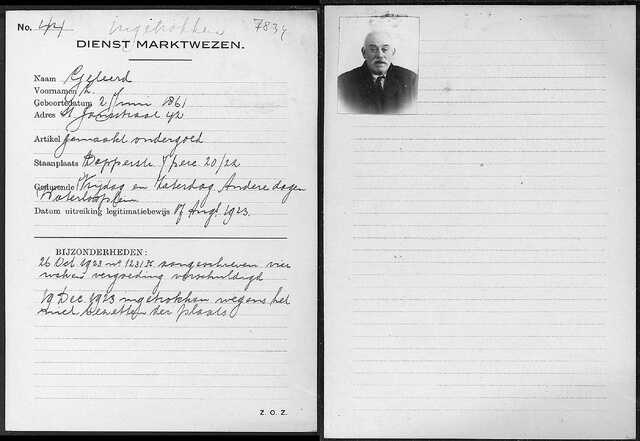 No. 44 ingetrokken 7834
DIENST MARKTWEZEN.
Naam Geleerd
Voornamen L.
Geboortedatum 2 Juni 1861
Adres St Jansstraat 42
Artikel gemaakt ondergoed
Staanplaats Dapperstr / perc 20/22
Gedurende Vrijdag en Zaterdag Andere dagen
Waterlooplein
Datum uitreiking legitimatiebewijs 17 Augs 1923.
BIJZONDERHEDEN:
26 Oct 1923 no 1231 aangeschreven vier
weken vergoeding verschuldigd
19 Dec. 1923 ingetrokken wegens het
niet bezetten der plaats
Z. O. Z.